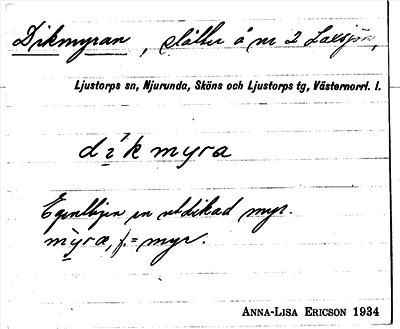 Dikmyran, slåtter å nr 2 Laxsjön,
Ljustorps sn, Njurunda, Sköns och Ljustorps tg, Västernorrl. l.
di'k myra
Egentligen en utdikad myr.
myra, f. = myr.
ANNA-LISA ERICSON 1934